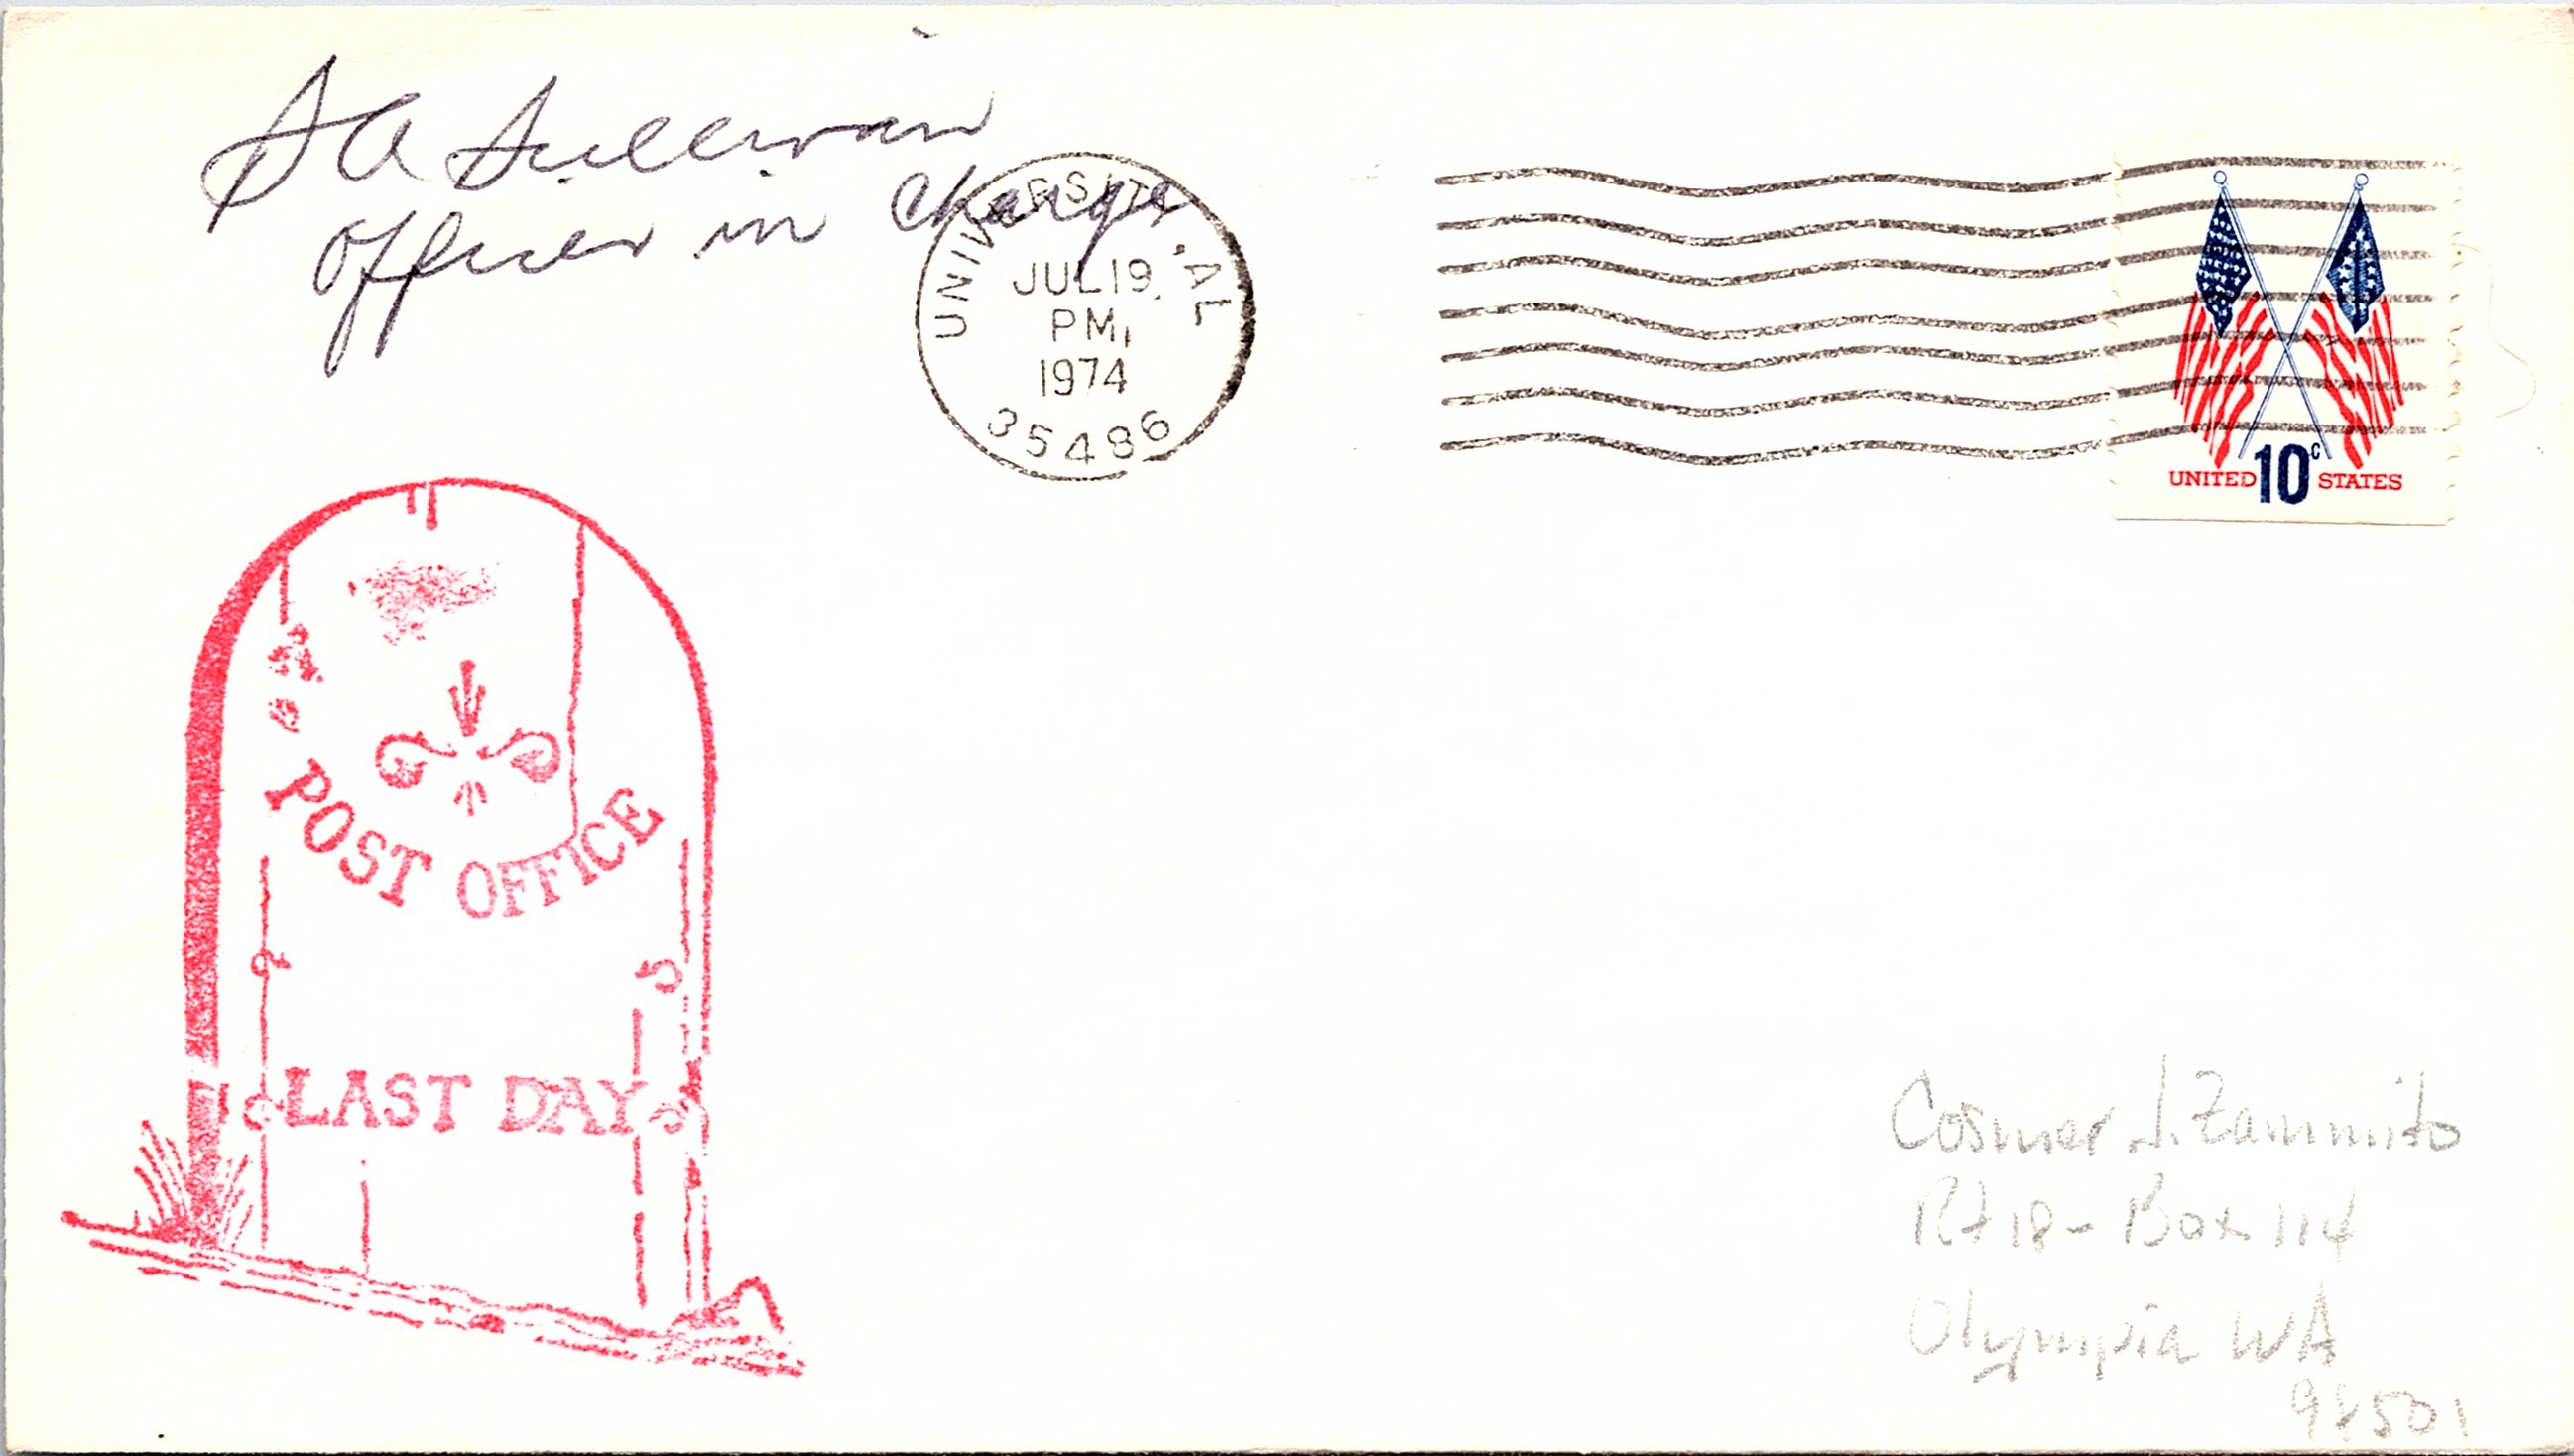 S A Sullivan
Officer in Charge
UNIVERSITY, AL
JUL 19
PM
1974
35486
UNITED 10c STATES
POST OFFICE
LAST DAY
Cosmer J. Zammito
Rt 18 - Box 114
Olympia WA
98501